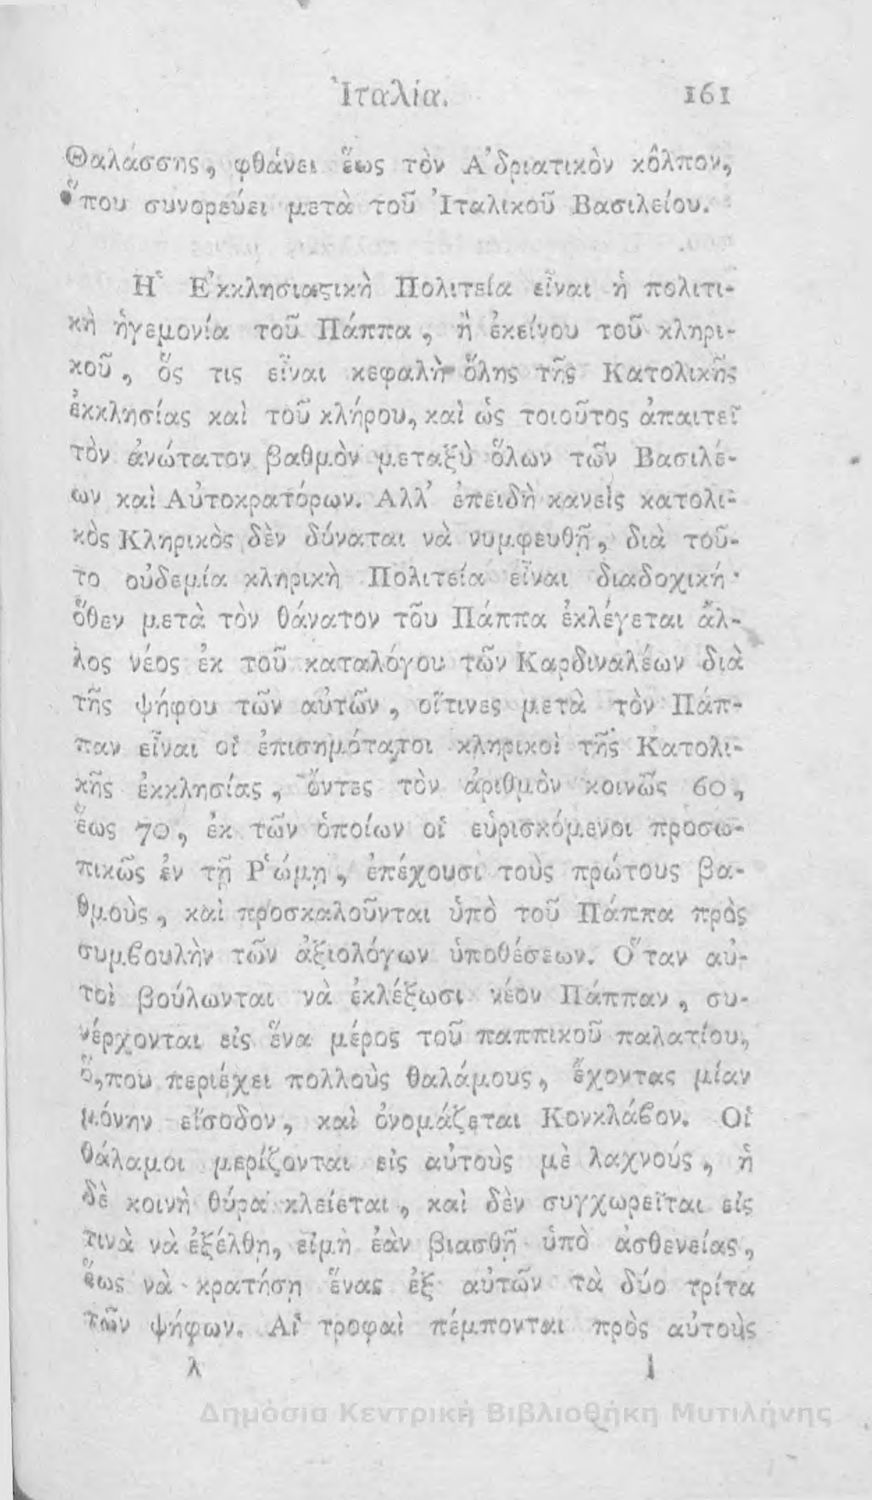 Ἰταλία. 161
Θαλάσσης, φθάνει ἕως τὸν Ἀδριατικὸν κόλπον,
ὅπου συνορεύει μετὰ τοῦ Ἰταλικοῦ Βασιλείου.
Ἡ Ἐκκλησιαϛικὴ Πολιτεία εἶναι ἡ πολιτι-
κὴ ἡγεμονία τοῦ Πάππα, ἢ ἐκείνου τοῦ κληρι-
κοῦ, ὅς τις εἶναι κεφαλὴ ὅλης τῆς Κατολικῆς
ἐκκλησίας καὶ τοῦ κλήρου, καὶ ὡς τοιοῦτος ἀπαιτεῖ
τὸν ἀνώτατον βαθμὸν μεταξὺ ὅλων τῶν Βασιλέ-
ων καὶ Αὐτοκρατόρων. Ἀλλ' ἐπειδὴ κανεὶς κατολι-
κὸς Κληρικὸς δὲν δύναται νὰ νυμφευθῇ, διὰ τοῦ-
το οὐδεμία κληρικὴ Πολιτεία εἶναι διαδοχική·
ὅθεν μετὰ τὸν θάνατον τοῦ Πάππα ἐκλέγεται ἄλ-
λος νέος ἐκ τοῦ καταλόγου τῶν Καρδιναλέων διὰ
τῆς ψήφου τῶν αὐτῶν, οἵτινες μετὰ τὸν Πάπ-
παν εἶναι οἱ ἐπισημότατοι κληρικοὶ τῆς Κατολι-
κῆς ἐκκλησίας, ὄντες τὸν ἀριθμὸν κοινῶς 60,
ἕως 70, ἐκ τῶν ὁποίων οἱ εὑρισκόμενοι προσω-
πικῶς ἐν τῇ Ῥώμῃ, ἐπέχουσι τοὺς πρώτους βα-
θμοὺς, καὶ προσκαλοῦνται ὑπὸ τοῦ Πάππα πρὸς
συμβουλὴν τῶν ἀξιολόγων ὑποθέσεων. Ὅταν αὐ-
τοὶ βούλωνται νὰ ἐκλέξωσι νέον Πάππαν, συ-
νέρχονται εἰς ἕνα μέρος τοῦ παππικοῦ παλατίου,
ὅ,που περιέχει πολλοὺς θαλάμους, ἔχοντας μίαν
μόνην εἴσοδον, καὶ ὀνομάζεται Κονκλάβον. Οἱ
θάλαμοι μερίζονται εἰς αὐτοὺς μὲ λαχνούς, ἡ
δὲ κοινὴ θύρα κλείεται, καὶ δὲν συγχωρεῖται εἰς
τινὰ νὰ ἐξέλθῃ, εἰμὴ ἐὰν βιασθῇ ὑπὸ ἀσθενείας,
ἕως νὰ κρατήσῃ ἕνας ἐξ αὐτῶν τὰ δύο τρίτα
τῶν ψήφων. Αἱ τροφαὶ πέμπονται πρὸς αὐτοὺς
λ
Δημόσια Κεντρική Βιβλιοθήκη Μυτιλήνης